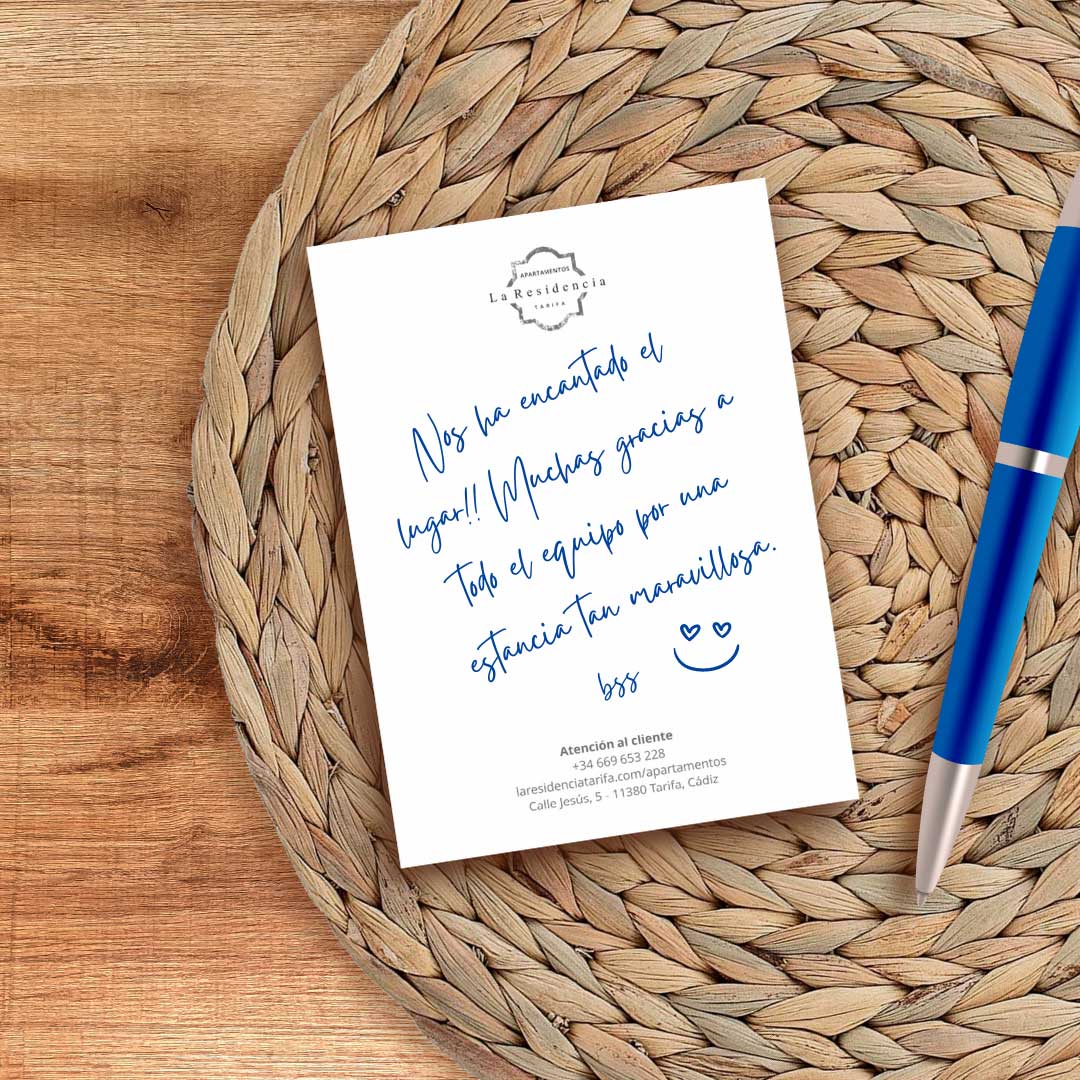 APARTAMENTOS
La Residencia
TARIFA
Nos ha encantado el
lugar!! Muchas gracias a
todo el equipo por una
estancia tan maravillosa.
bss
Atención al cliente
+34 669 653 228
laresidenciatarifa.com/apartamentos
Calle Jesús, 5 - 11380 Tarifa, Cádiz